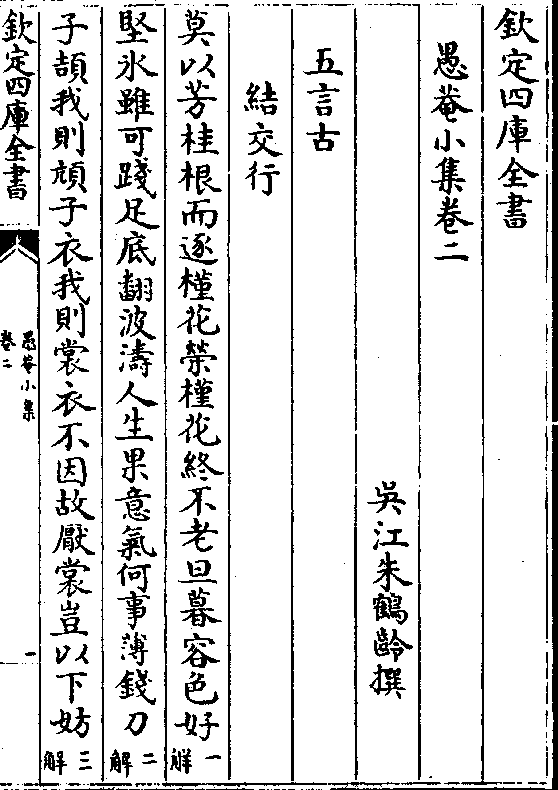 欽定四庫全書
愚菴小集卷二
吳江朱鶴齡撰
五言古
結交行
莫以芳桂根而逐槿花榮槿花終不老旦暮容色好一解
堅氷雖可踐足底翻波濤人生果意氣何事薄錢刀二解
子頡我則頏子衣我則裳衣不因故厭裳豈以下妨三解
欽定四庫全書
愚菴小集
卷二
一